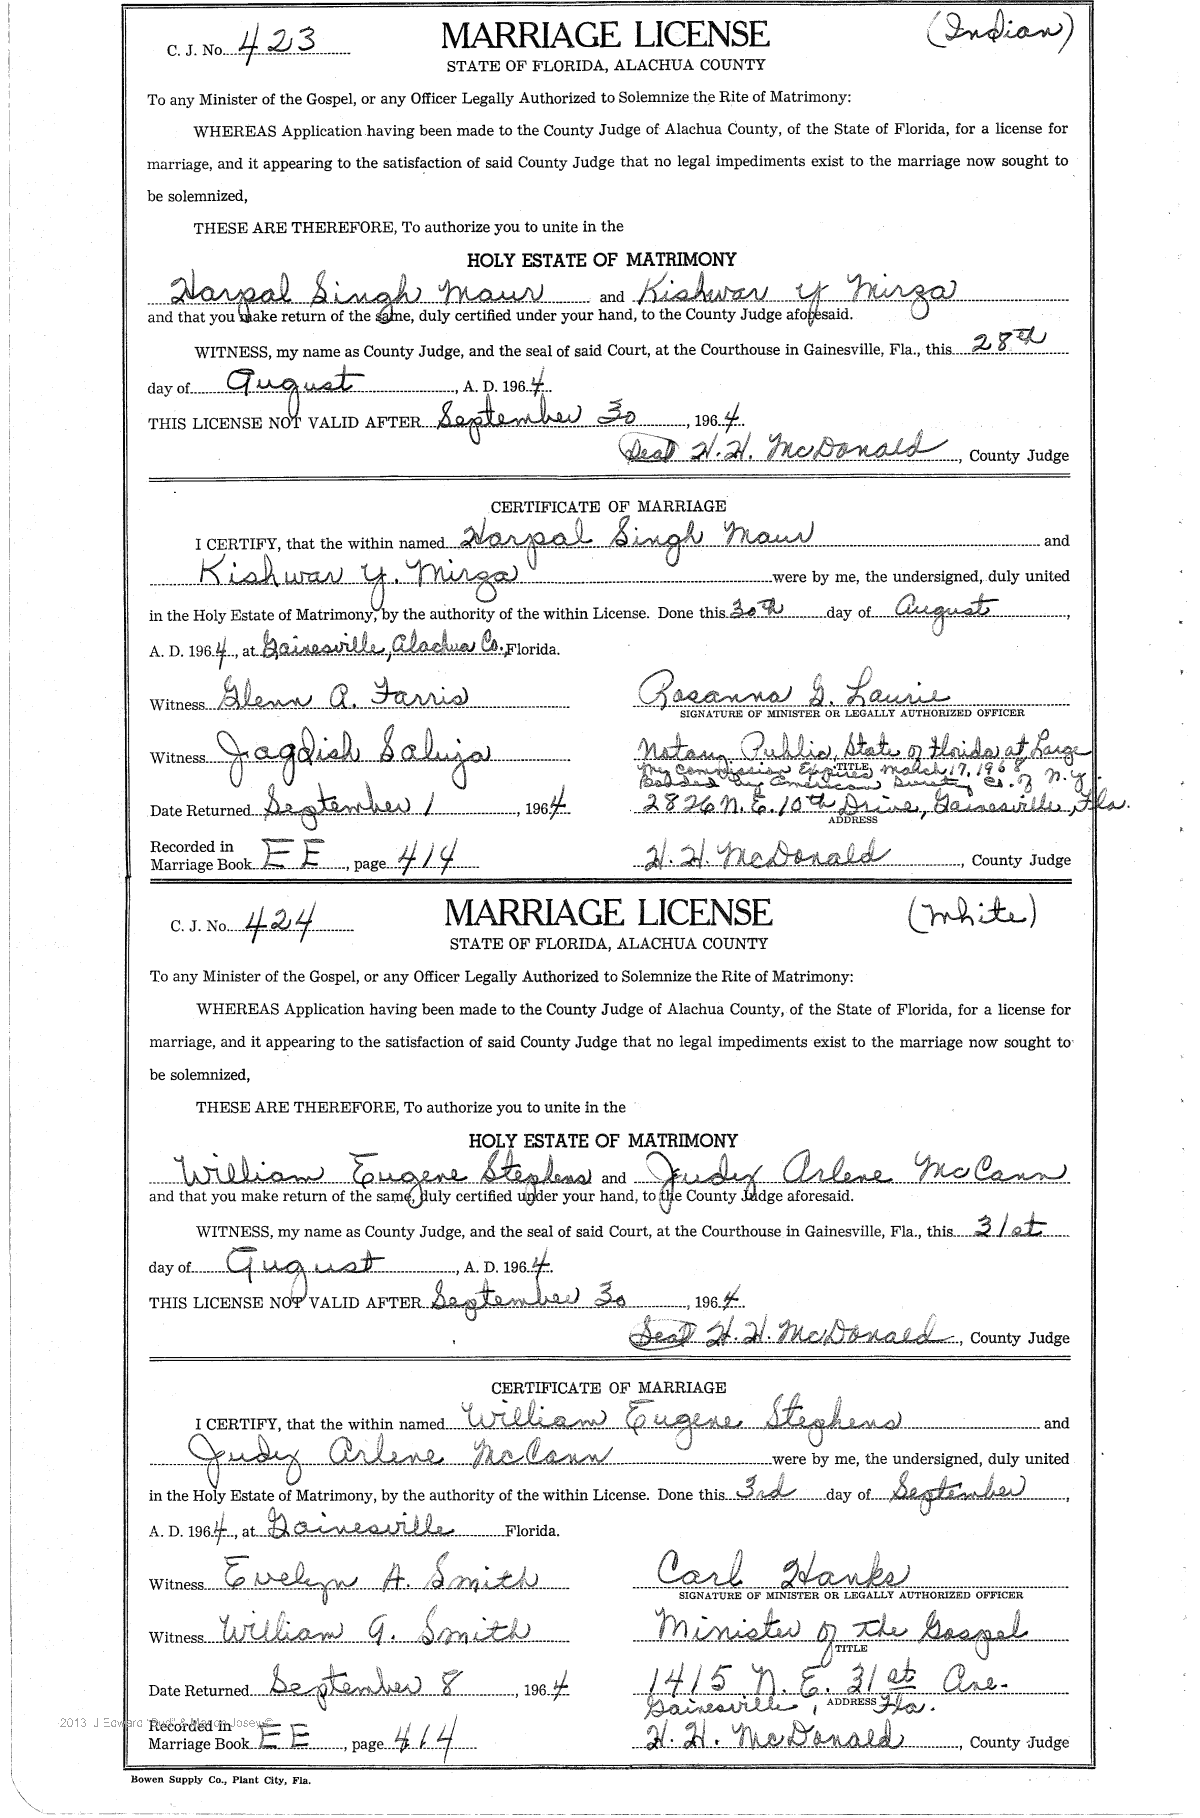 C. J. No. 423 MARRIAGE LICENSE (Indian)
STATE OF FLORIDA, ALACHUA COUNTY
To any Minister of the Gospel, or any Officer Legally Authorized to Solemnize the Rite of Matrimony:
WHEREAS Application having been made to the County Judge of Alachua County, of the State of Florida, for a license for
marriage, and it appearing to the satisfaction of said County Judge that no legal impediments exist to the marriage now sought to
be solemnized,
THESE ARE THEREFORE, To authorize you to unite in the
HOLY ESTATE OF MATRIMONY
Harpal Singh Maur and Kishwar Y Mirza
and that you make return of the same, duly certified under your hand, to the County Judge aforesaid.
WITNESS, my name as County Judge, and the seal of said Court, at the Courthouse in Gainesville, Fla., this 28th
day of August, A. D. 1964.
THIS LICENSE NOT VALID AFTER September 30, 1964.
Seal H. H. McDonald, County Judge
CERTIFICATE OF MARRIAGE
I CERTIFY, that the within named Harpal Singh Maur and
Kishwar Y. Mirza were by me, the undersigned, duly united
in the Holy Estate of Matrimony, by the authority of the within License. Done this 30th day of August,
A. D. 1964, at Gainesville, Alachua Co., Florida.
Witness Glenn A. Farris Rosanna G. Laurie
SIGNATURE OF MINISTER OR LEGALLY AUTHORIZED OFFICER
Witness Jagdish Saluja Notary Public, State of Florida at Large
My Commission Expires March 17, 1968
TITLE
Bonded by American Surety Co. of N.Y.
Date Returned September 1, 1964 2826 N. E. 10th Drive, Gainesville, Fla.
ADDRESS
Recorded in
Marriage Book EE, page 414 H. H. McDonald, County Judge
C. J. No. 424 MARRIAGE LICENSE (White)
STATE OF FLORIDA, ALACHUA COUNTY
To any Minister of the Gospel, or any Officer Legally Authorized to Solemnize the Rite of Matrimony:
WHEREAS Application having been made to the County Judge of Alachua County, of the State of Florida, for a license for
marriage, and it appearing to the satisfaction of said County Judge that no legal impediments exist to the marriage now sought to
be solemnized,
THESE ARE THEREFORE, To authorize you to unite in the
HOLY ESTATE OF MATRIMONY
William Eugene Stephens and Judy Arlene McCann
and that you make return of the same, duly certified under your hand, to the County Judge aforesaid.
WITNESS, my name as County Judge, and the seal of said Court, at the Courthouse in Gainesville, Fla., this 31st
day of August, A. D. 1964.
THIS LICENSE NOT VALID AFTER September 30, 1964.
Seal H. H. McDonald, County Judge
CERTIFICATE OF MARRIAGE
I CERTIFY, that the within named William Eugene Stephens and
Judy Arlene McCann were by me, the undersigned, duly united
in the Holy Estate of Matrimony, by the authority of the within License. Done this 3rd day of September,
A. D. 1964, at Gainesville Florida.
Witness Evelyn A. Smith Carl Hanks
SIGNATURE OF MINISTER OR LEGALLY AUTHORIZED OFFICER
Witness William G. Smith Minister of the Gospel
TITLE
Date Returned September 8, 1964 1415 N. E. 31st Ave.
Gainesville, ADDRESS Fla.
Recorded in
Marriage Book EE, page 414 H. H. McDonald, County Judge
Bowen Supply Co., Plant City, Fla.